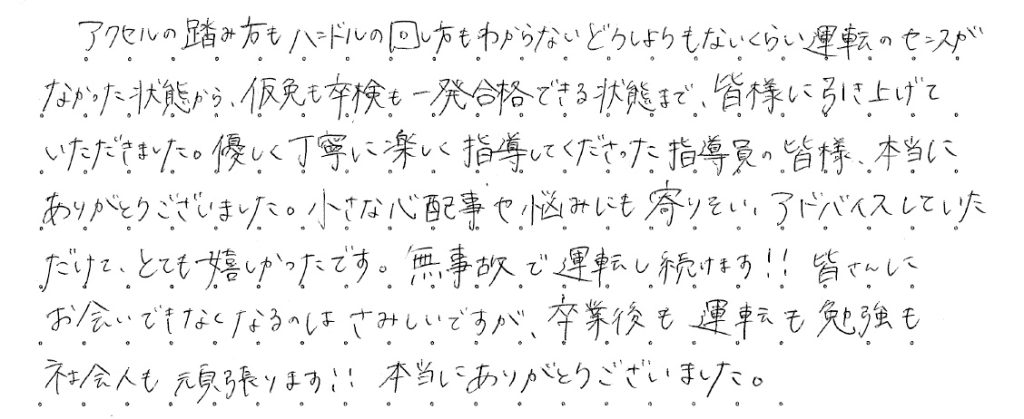 アクセルの踏み方もハンドルの回し方もわからないどうしようもないくらい運転のセンスが
なかった状態から、仮免も卒検も一発合格できる状態まで、皆様に引き上げて
いただきました。優しく丁寧に楽しく指導してくださった指導員の皆様、本当に
ありがとうございました。小さな心配事や悩みにも寄りそい、アドバイスしていた
だけて、とても嬉しかったです。無事故で運転し続けます!! 皆さんに
お会いできなくなるのはさみしいですが、卒業後も運転も勉強も
社会人も頑張ります!! 本当にありがとうございました。